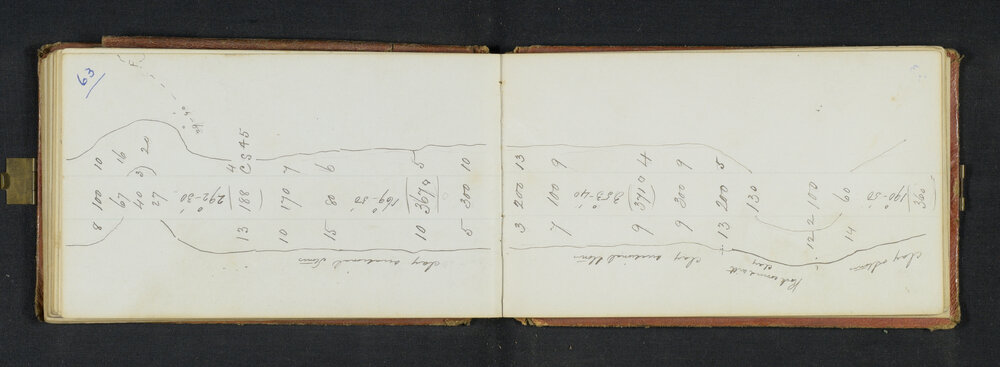 63
8 100 10
67 16
40 3) 20
27
292°-30'
13 188 4 CS 45
10 170 7
15 80 6
169°-50'
10 367 5
5 300 10
clay occasional stone
3 200 13
7 100 9
353°-40'
9 371 4
9 300 9
13 200 5
130
12 2 100
14 60
190°-50'
360
clay occasional stone
clay
clay